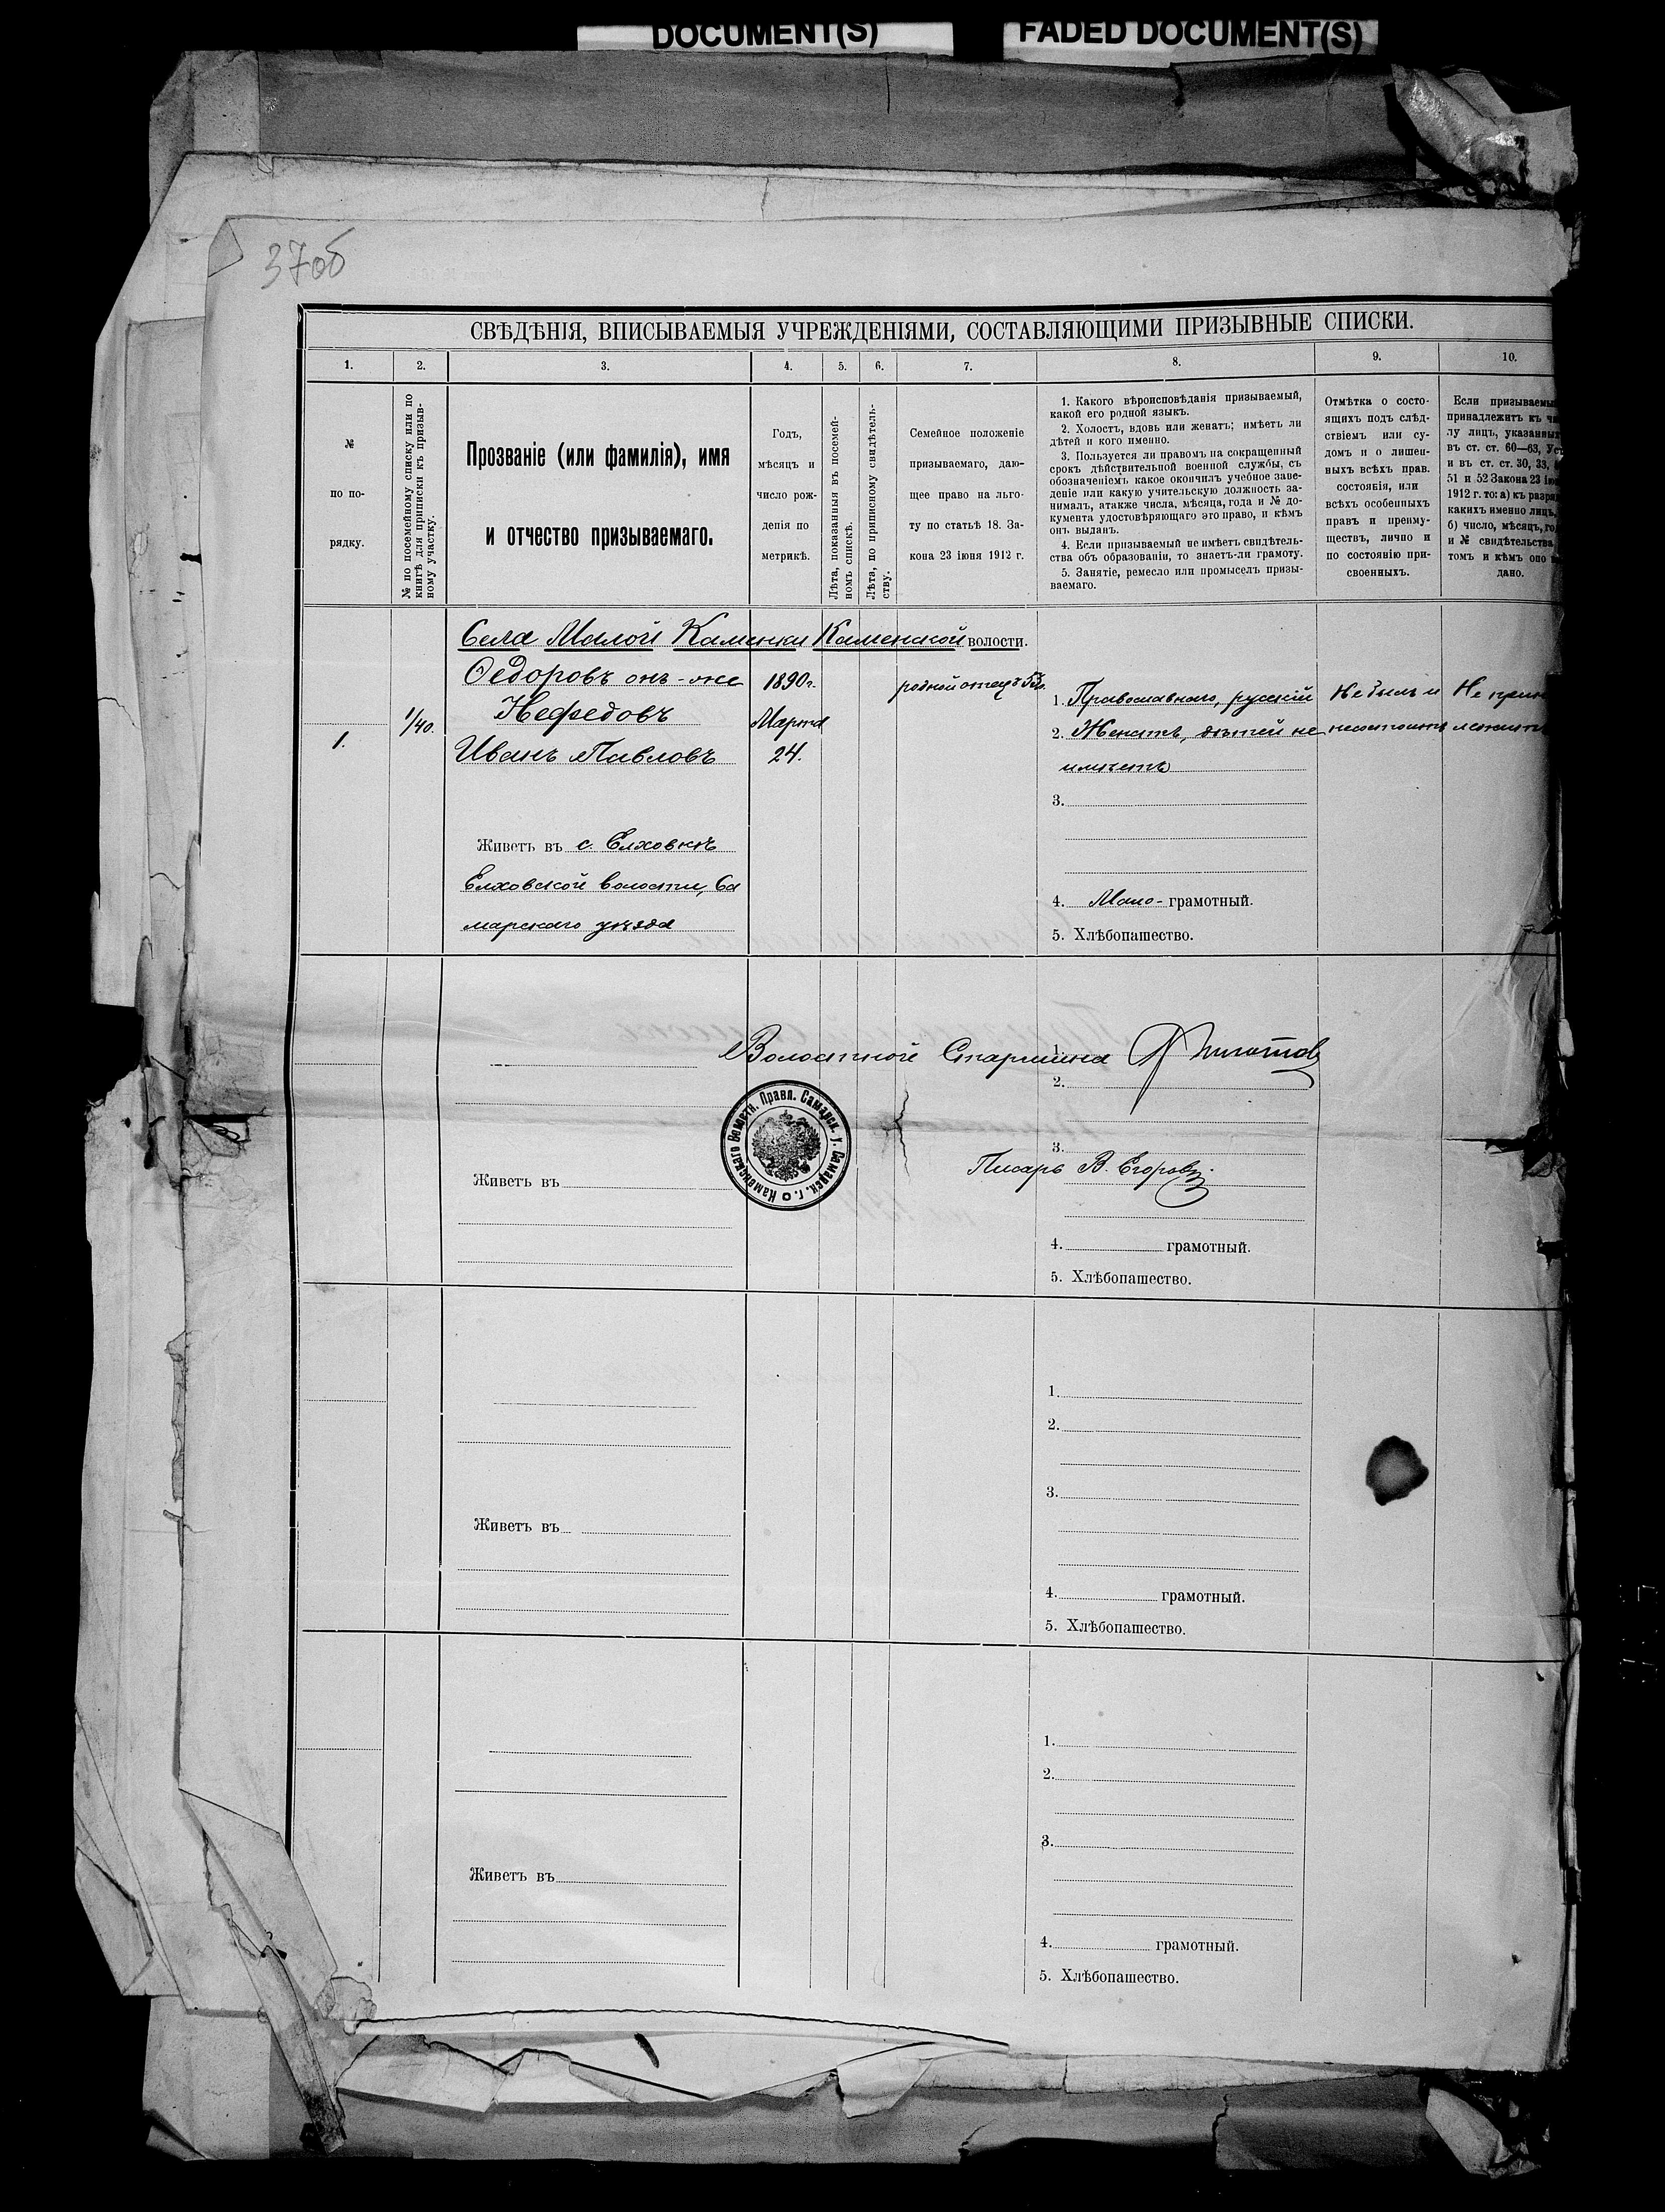 DOCUMENT(S) FADED DOCUMENT(S)
37об
СВѢДѢНІЯ, ВПИСЫВАЕМЫЯ УЧРЕЖДЕНІЯМИ, СОСТАВЛЯЮЩИМИ ПРИЗЫВНЫЕ СПИСКИ.
1. 2. 3. 4. 5. 6. 7. 8. 9. 10.
№
по по-
рядку.
№ по посемейному списку или по
книгѣ для приписки къ призыв-
ному участку.
Прозваніе (или фамилія), имя
и отчество призываемаго.
Годъ,
мѣсяцъ и
число рож-
денія по
метрикѣ.
Лѣта, показанныя въ посемей-
номъ спискѣ.
Лѣта, по приписному свидѣтель-
ству.
Семейное положеніе
призываемаго, даю-
щее право на льго-
ту по статьѣ 18. За-
кона 23 іюня 1912 г.
1. Какого вѣроисповѣданія призываемый,
какой его родной языкъ.
2. Холостъ, вдовъ или женатъ; имѣетъ ли
дѣтей и кого именно.
3. Пользуется ли правомъ на сокращенный
срокъ дѣйствительной военной службы, съ
обозначеніемъ какое окончилъ учебное заве-
деніе или какую учительскую должность за-
нималъ, атакже числа, мѣсяца, года и № до-
кумента удостовѣряющаго это право, и кѣмъ
онъ выданъ.
4. Если призываемый не имѣетъ свидѣтель-
ства объ образованіи, то знаетъ-ли грамоту.
5. Занятіе, ремесло или промыселъ призы-
ваемаго.
Отмѣтка о состо-
ящихъ подъ слѣд-
ствіемъ или су-
домъ и о лишен-
ныхъ всѣхъ прав.
состоянія, или
всѣхъ особенныхъ
правъ и преиму-
ществъ, лично и
по состоянію при-
своенныхъ.
Если призываемы
принадлежитъ къ чи
лу лицъ, указанных
въ ст. ст. 60—63, Ус
и въ ст. ст. 30, 33,
51 и 52 Закона 23 ію
1912 г. то: а) къ разря
какихъ именно лицъ,
б) число, мѣсяцъ, го
и № свидѣтельства
томъ и кѣмъ оно
дано.
Села Малой Каменки Каменской волости.
Федоровъ онъ-же 1890г. родной отецъ 53л.
1. Православного, русскій Не былъ и Не прин
Нефедовъ Марта
1. 1/40. 2. Женатъ, дѣтей не несостоитъ лежитъ
Иванъ Павловъ 24.
имѣетъ
3.
Живетъ въ с. Елховкѣ
Елховской волости, Са
4. Мало- грамотный.
марскаго уѣзда
5. Хлѣбопашество.
Волостной Старшина
1.
2.
Каменскаго Волостн. Правл. Самарск. у. Самарск. г.
3.
Писарь В. Егоровъ.
Живетъ въ
4. грамотный.
5. Хлѣбопашество.
1.
2.
3.
Живетъ въ
4. грамотный.
5. Хлѣбопашество.
1.
2.
3.
Живетъ въ
4. грамотный.
5. Хлѣбопашество.